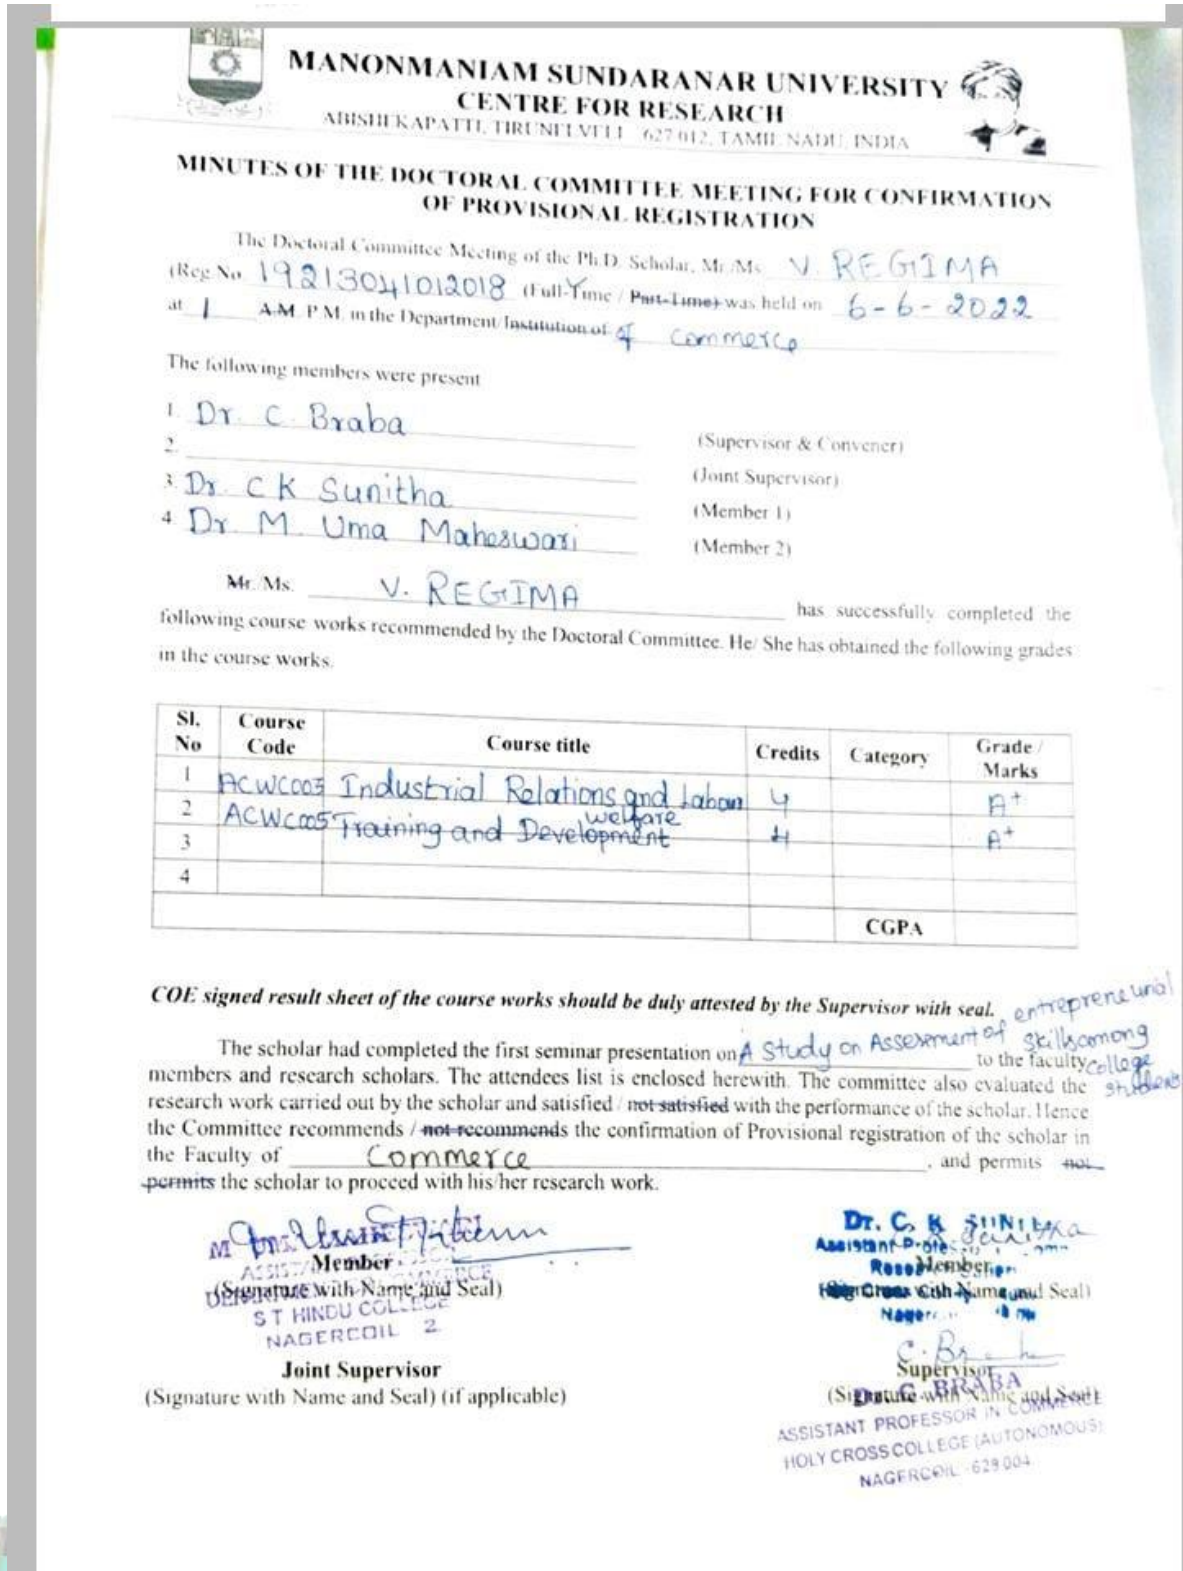 MANONMANIAM SUNDARANAR UNIVERSITY
CENTRE FOR RESEARCH
ABISHEKAPATTI, TIRUNELVELI 627 012, TAMIL NADU, INDIA
MINUTES OF THE DOCTORAL COMMITTEE MEETING FOR CONFIRMATION
OF PROVISIONAL REGISTRATION
The Doctoral Committee Meeting of the Ph.D. Scholar, Mr./Ms. V. REGIMA
(Reg.No 19213041012018 (Full-Time / Part-Time) was held on 6-6-2022
at 1 A.M. P.M. in the Department/Institution of of Commerce
The following members were present
1. Dr. C. Braba (Supervisor & Convener)
2. (Joint Supervisor)
3. Dr. C K Sunitha (Member 1)
4. Dr. M. Uma Maheswari (Member 2)
Mr./Ms. V. REGIMA has successfully completed the
following course works recommended by the Doctoral Committee. He/ She has obtained the following grades
in the course works.
Sl. No Course Code Course title Credits Category Grade / Marks
1 ACWC003 Industrial Relations and Labour welfare 4 A+
2 ACWC005 Training and Development 4 A+
3
4
CGPA
COE signed result sheet of the course works should be duly attested by the Supervisor with seal.
The scholar had completed the first seminar presentation on A Study on Assessment of entrepreneurial skills among college students to the faculty
members and research scholars. The attendees list is enclosed herewith. The committee also evaluated the
research work carried out by the scholar and satisfied / not satisfied with the performance of the scholar. Hence
the Committee recommends / not recommends the confirmation of Provisional registration of the scholar in
the Faculty of Commerce, and permits not
permits the scholar to proceed with his/her research work.
Member
(Signature with Name and Seal)
S T HINDU COLLEGE
NAGERCOIL 2
Dr. C. K. SUNITHA
Assistant
Member
with Name and Seal)
Joint Supervisor
(Signature with Name and Seal) (if applicable)
C. Br
Supervisor
(Signature with Name and Seal)
Dr. C. BRABA
ASSISTANT PROFESSOR IN COMMERCE
HOLY CROSS COLLEGE (AUTONOMOUS)
NAGERCOIL - 629 004